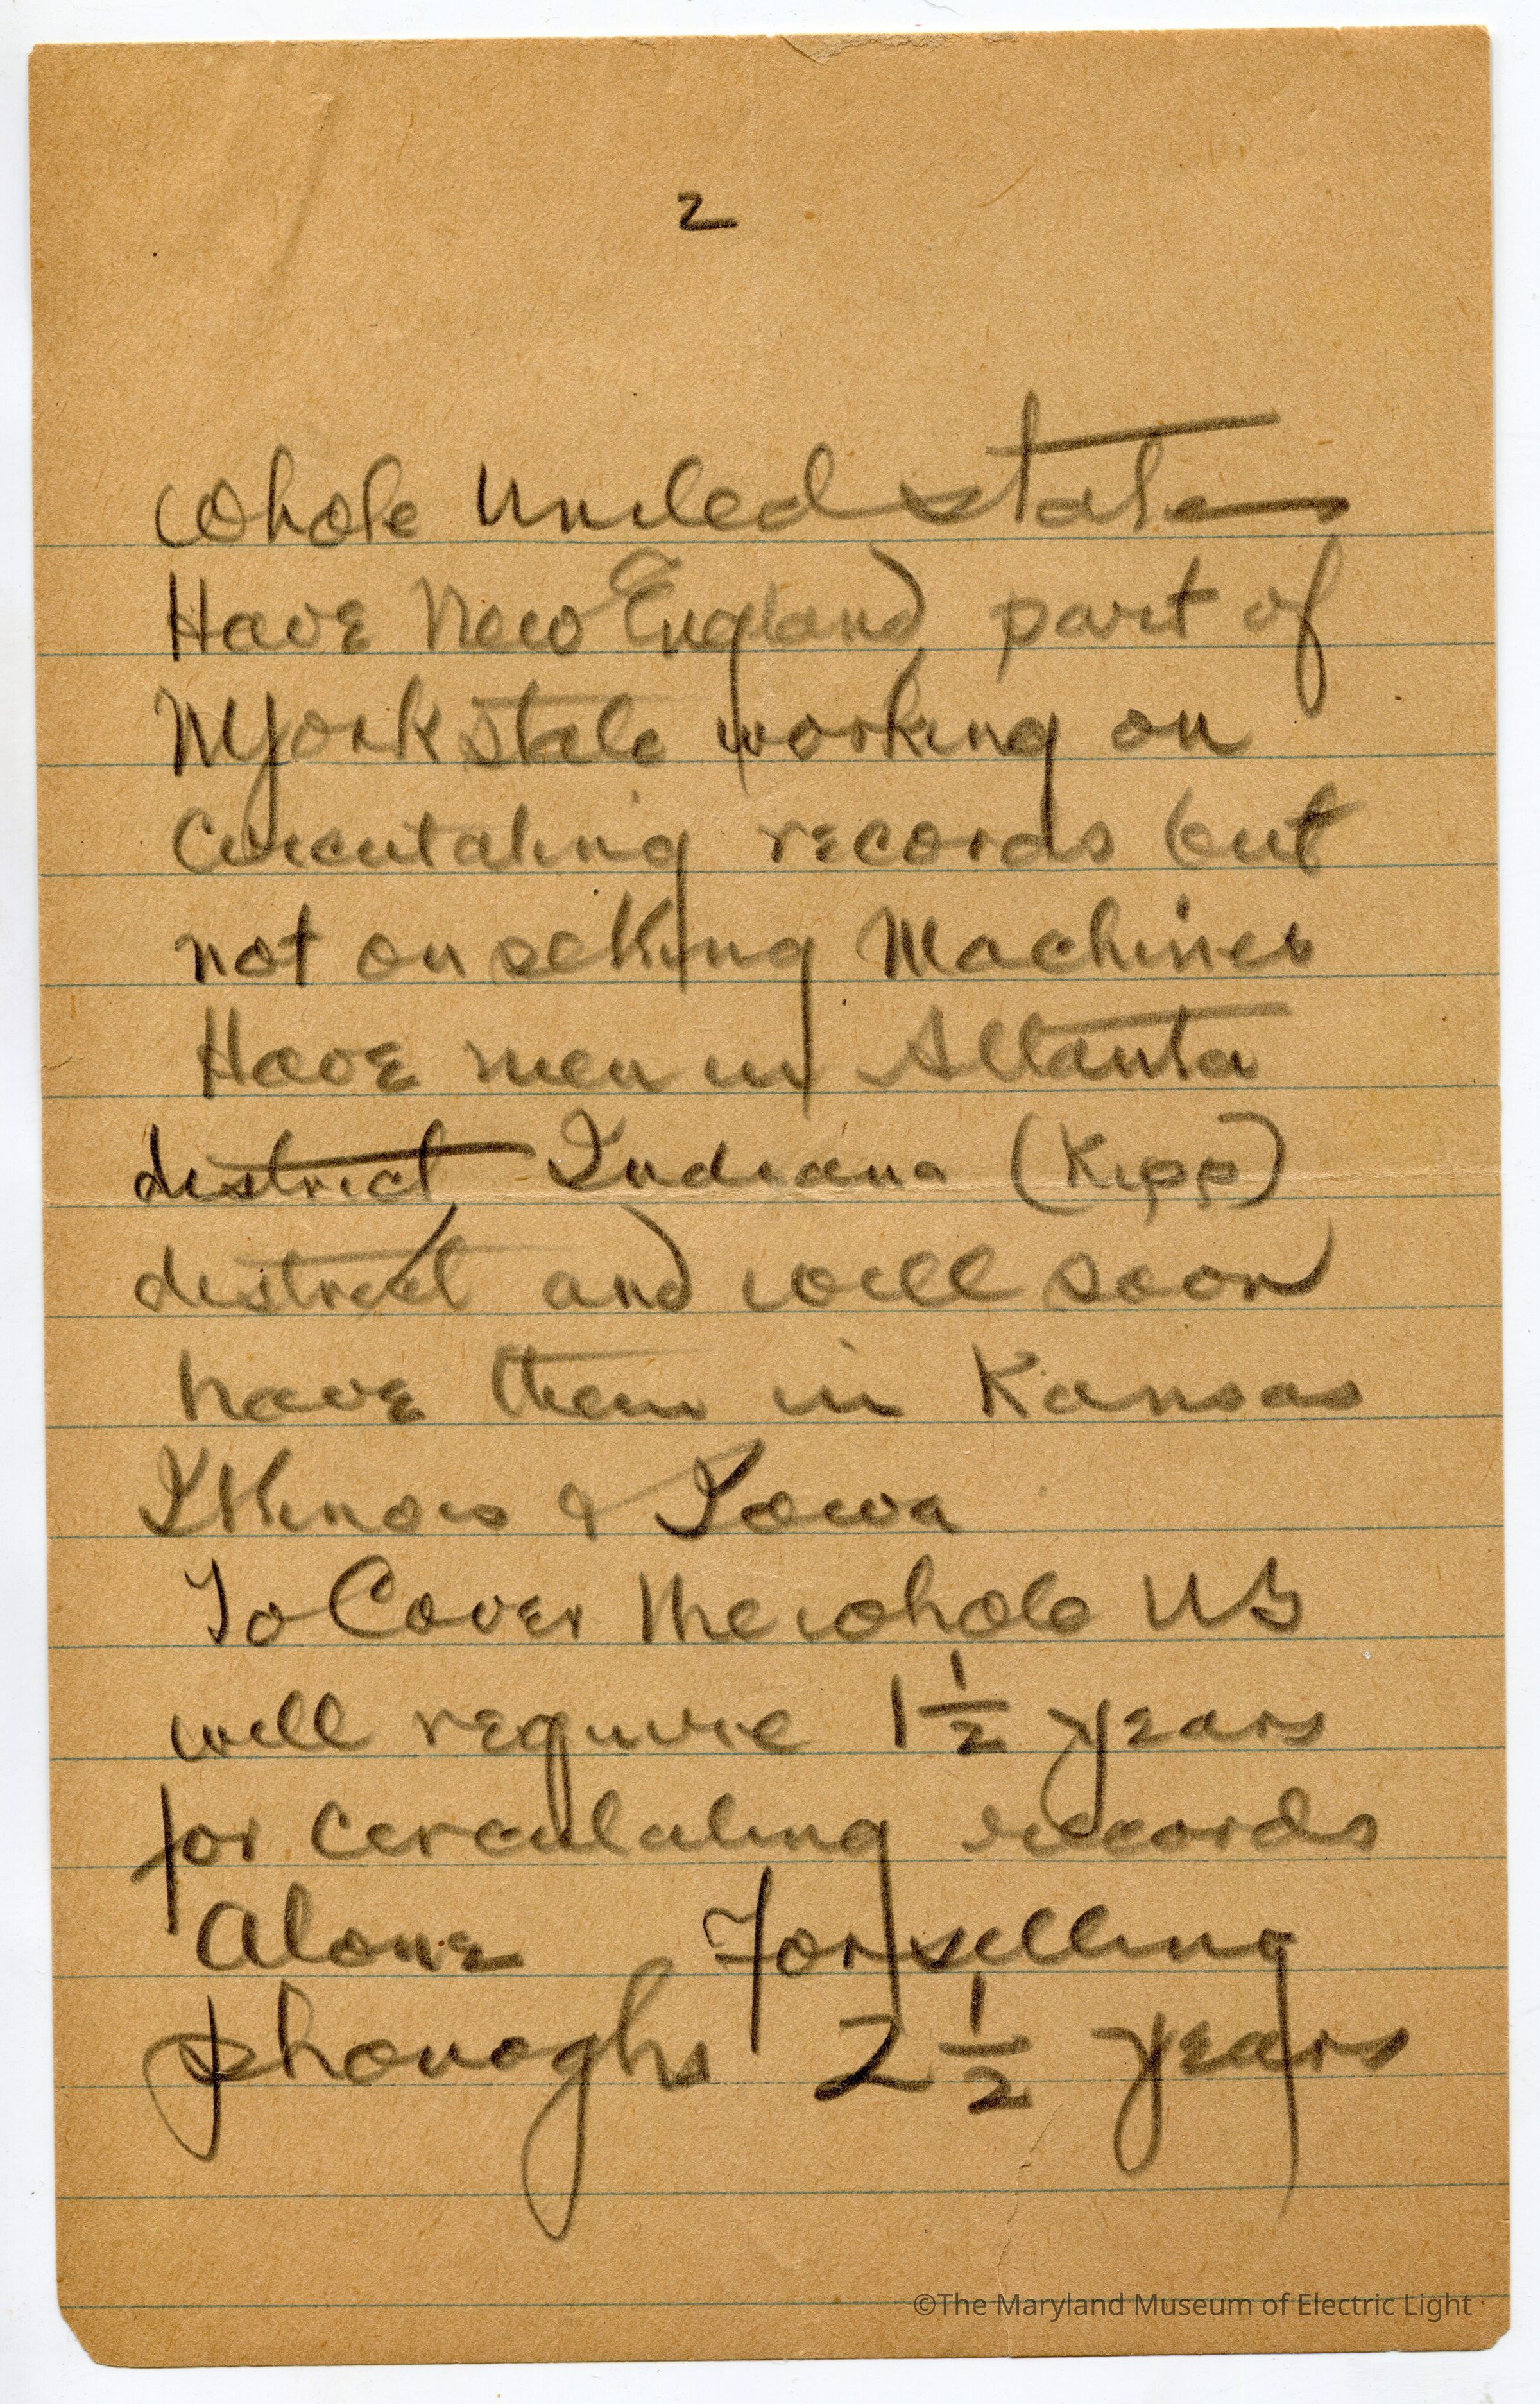 2
whole United states
Have New England part of
NYork state working on
Circulating records but
not on selling Machines
Have men in Atlanta
district Indiana (Kipp)
district and will soon
have them in Kansas
Illinois & Iowa
To Cover the whole US
will require 1 1/2 years
for circulating records
Alone For selling
phonoghs 2 1/2 years
©The Maryland Museum of Electric Light